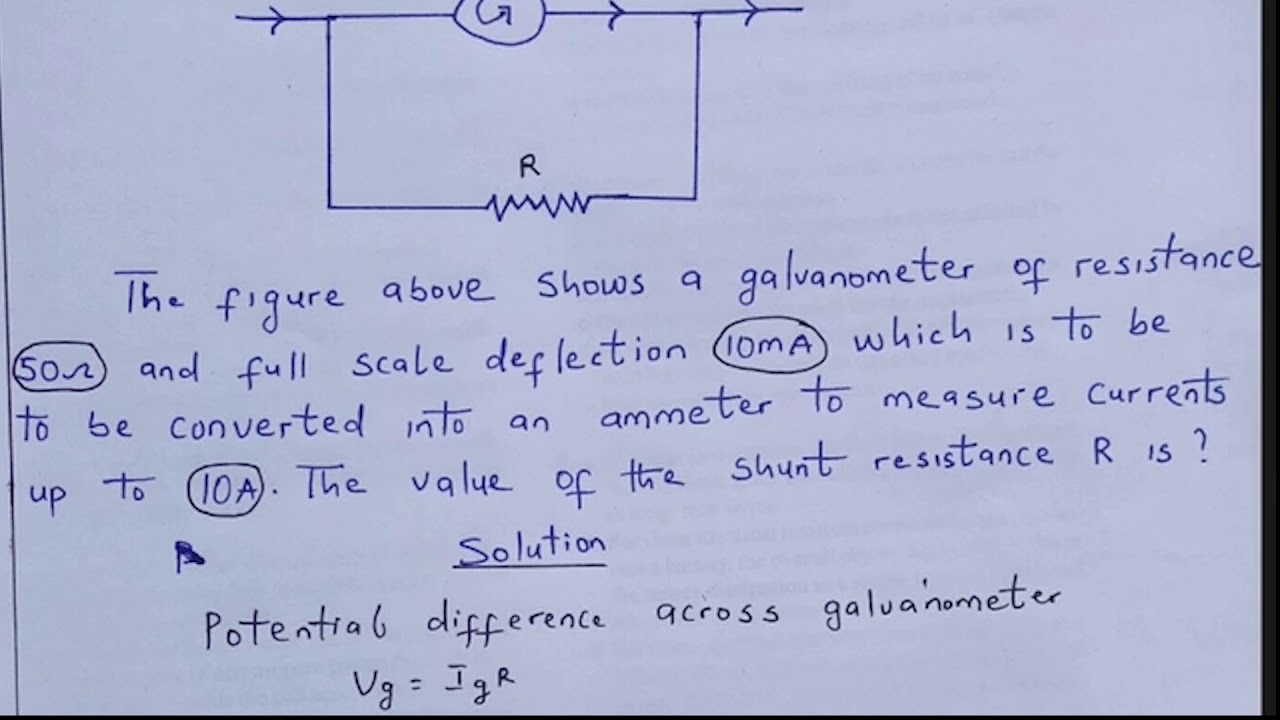 G
R
The figure above shows a galvanometer of resistance
50Ω and full scale deflection 10mA which is to be
to be converted into an ammeter to measure currents
up to 10A. The value of the shunt resistance R is?
Solution
Potential difference across galvanometer
Vg = IgR